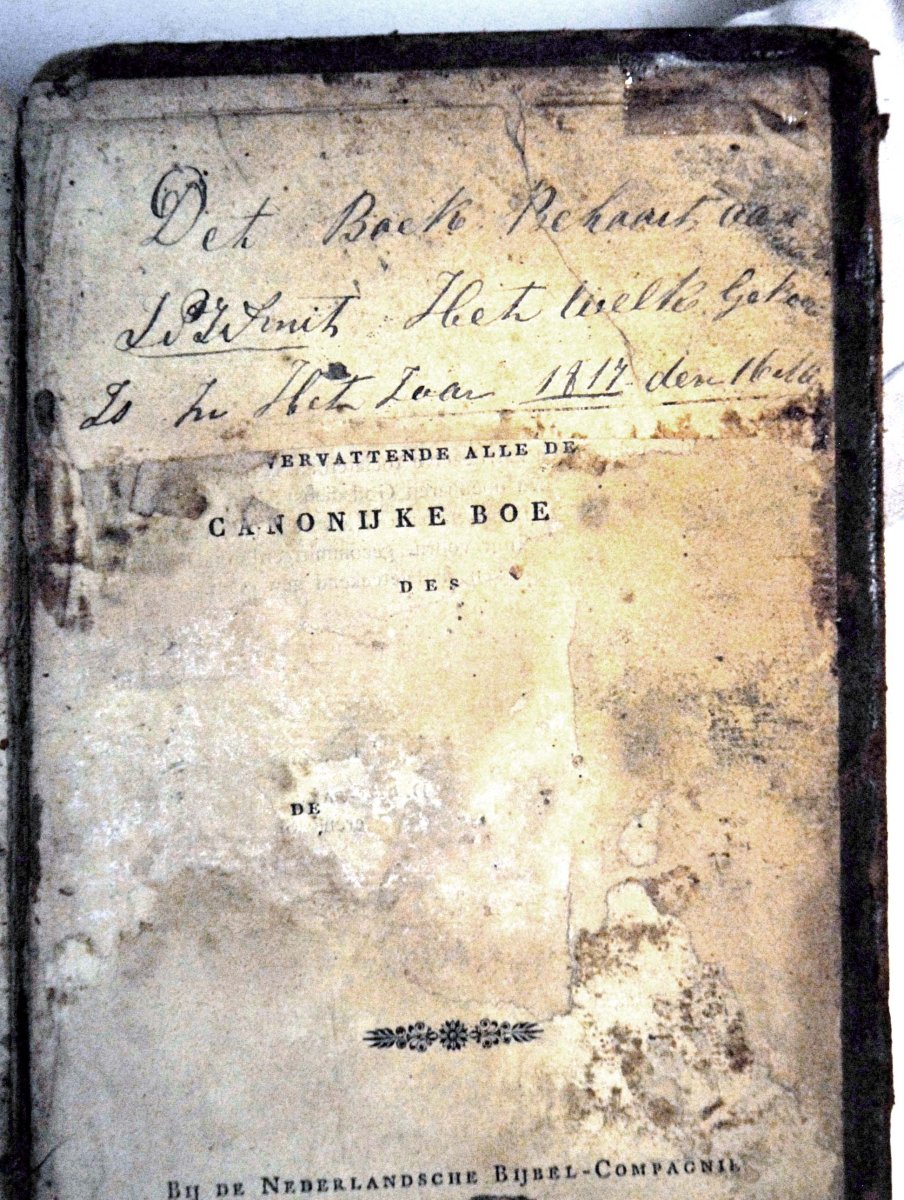 Det Boek Behoort aan
Het welk Gekoo
Is In Het Iaar 1817 den 16
VERVATTENDE ALLE DE
CANONIJKE BOE
DES
DE
BIJ DE NEDERLANDSCHE BIJBEL-COMPAGNIE